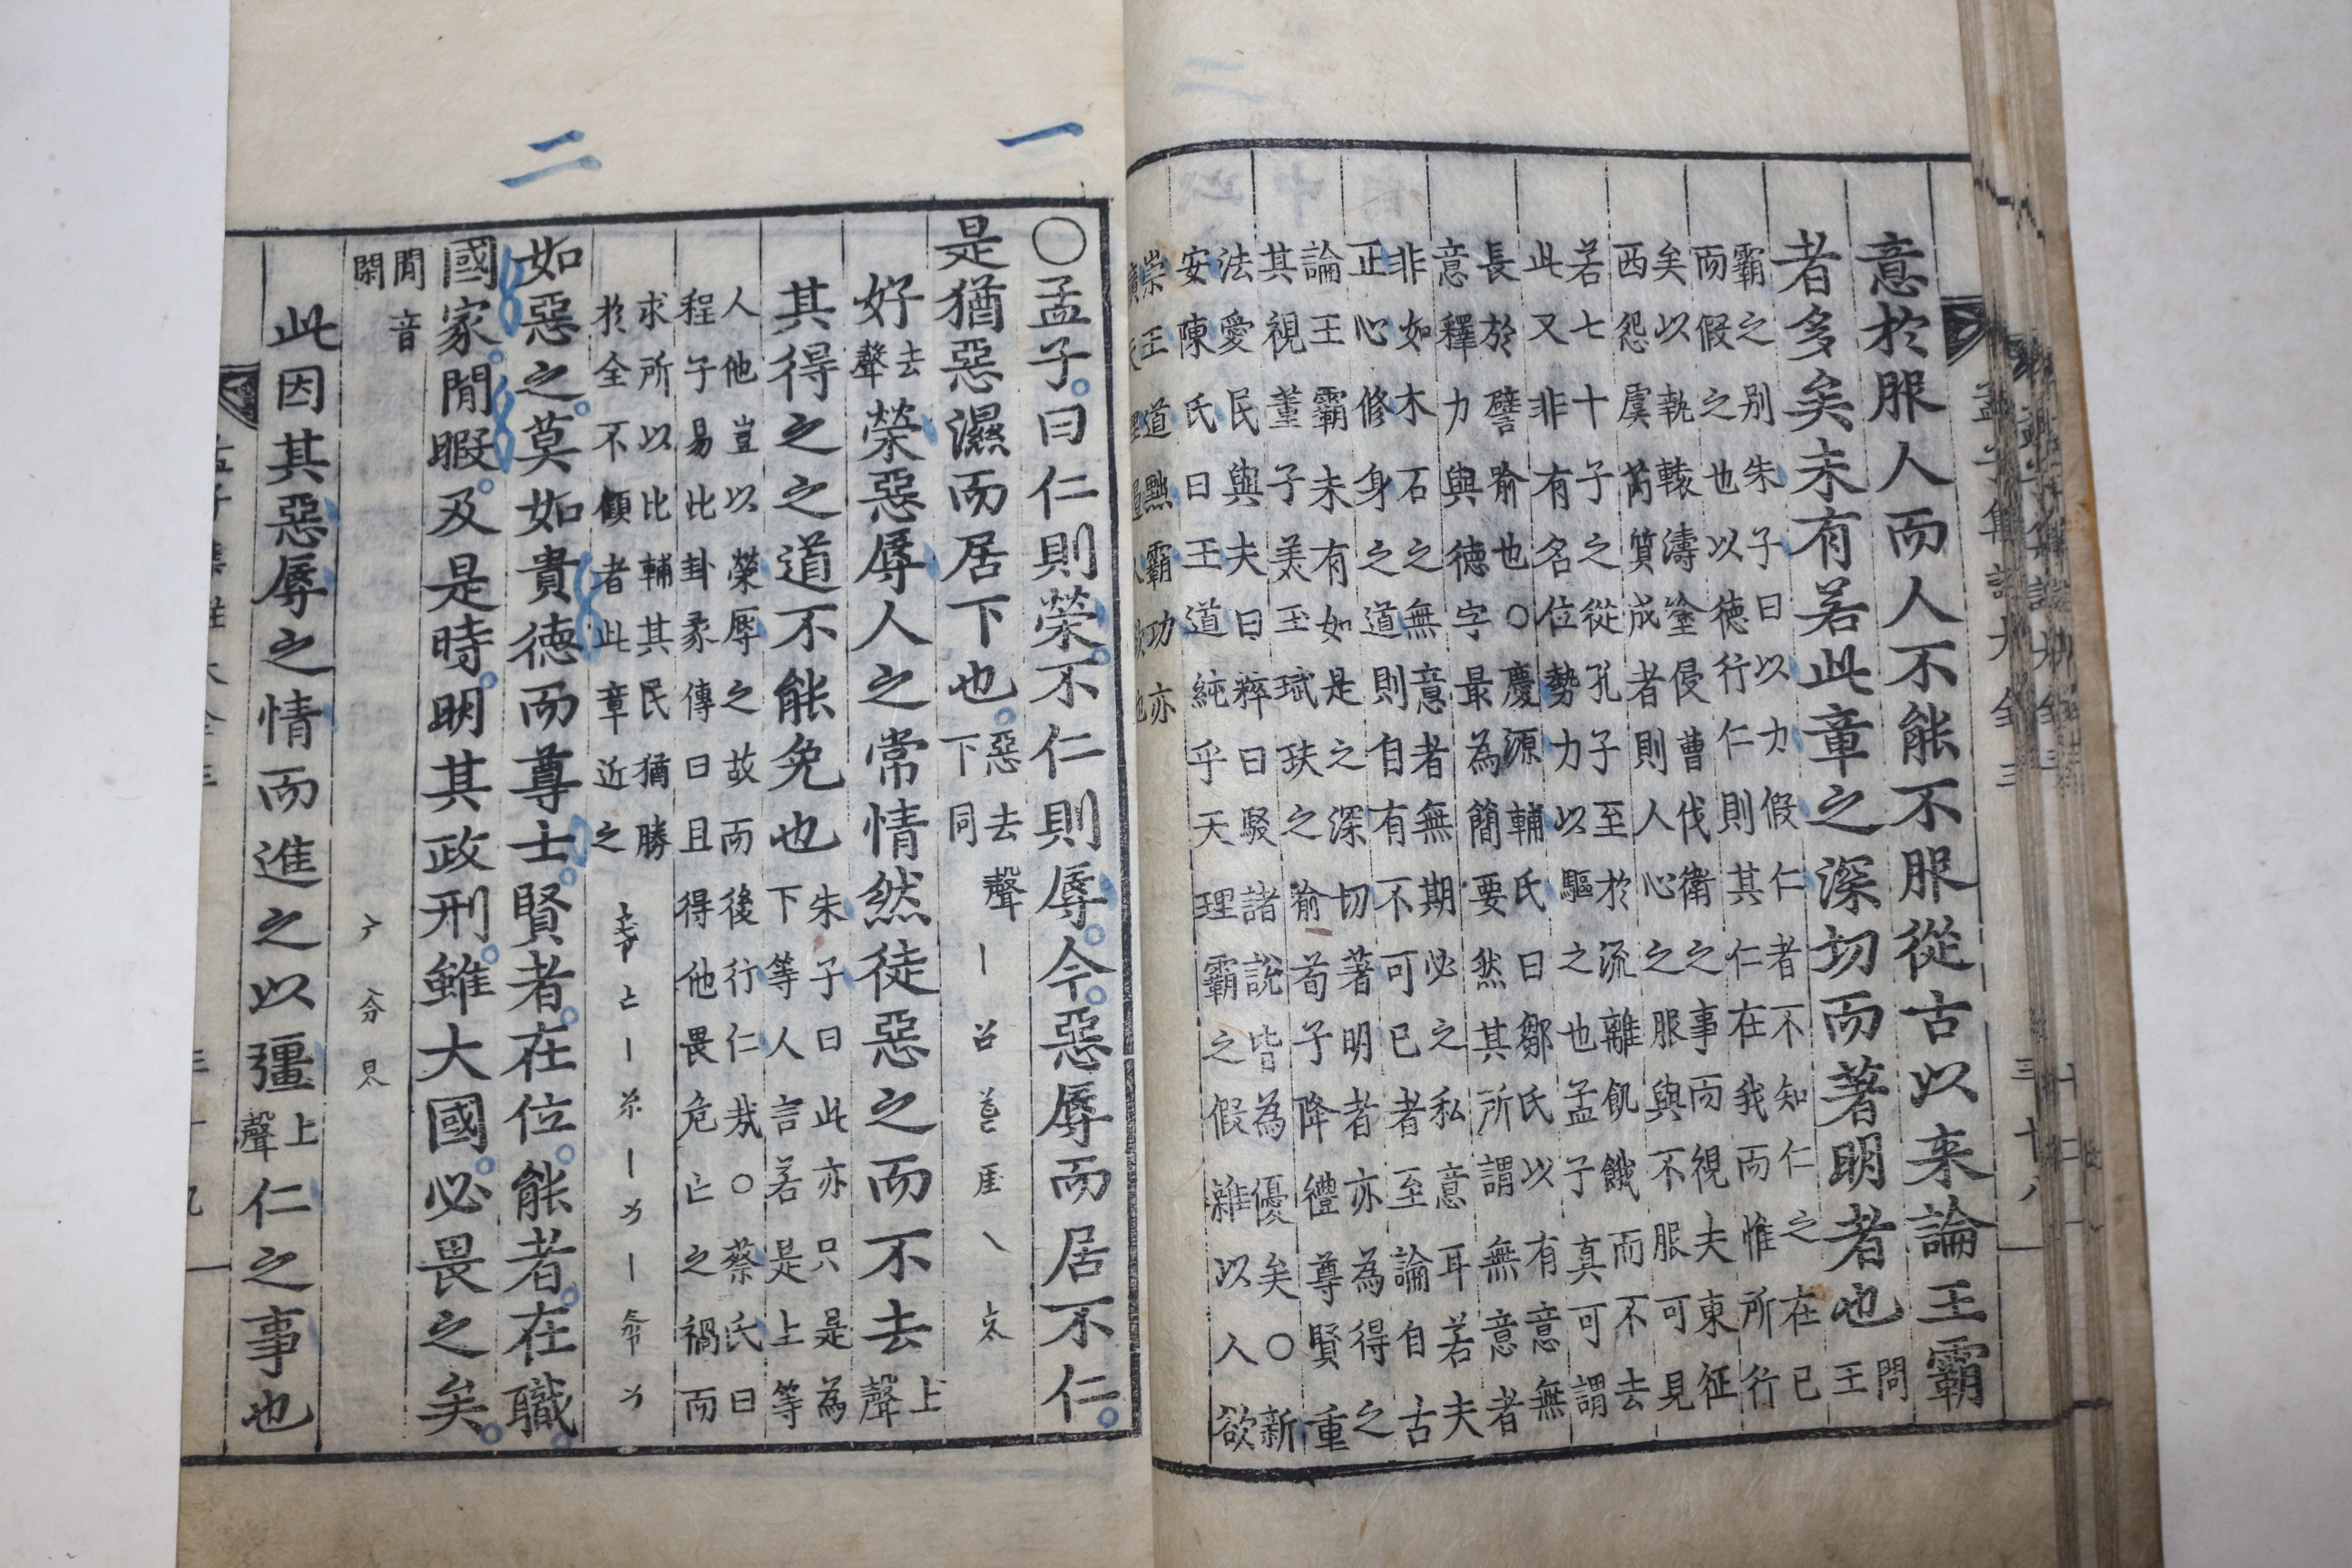 意於服人而人不能不服從古以来論王霸
者多矣未有若此章之深切而著明者也問王
霸之別朱子曰以力假仁者不知仁之在已
而假之也以德行仁則其仁在我而惟所行
矣以執轅濤塗侵曹伐衛之事而視夫東征
西怨虞芮質成者則人心之服與不服可見
若七十子之從孔子至於流離飢餓而不去
此又非有名位勢力以驅之也孟子真可謂
長於譬喻也○慶源輔氏曰鄒氏以有意無
意釋力與德字最為簡要然其所謂無意者
非如木石之無意者無期必之私意耳若夫
正心修身之道則自有不可已者至論自古
論王霸未有如是之深切著明者亦為得之
其視董子美玉珷玞之喻荀子降禮尊賢重
法愛民與夫曰粹曰駁諸說皆為優矣○新
安陳氏曰王道純乎天理霸之假雜以人欲
崇王道黜霸功亦
孟子集註大全三
三十八
一
○孟子曰仁則榮不仁則辱今惡辱而居不仁
是猶惡濕而居下也惡去聲下同
好去聲榮惡辱人之常情然徒惡之而不去上聲
其得之之道不能免也朱子曰此亦只是為下等人言若是上等
人他豈以榮辱之故而後行仁哉○蔡氏曰
程子易比卦彖傳曰且得他畏危亡之禍而
求所以比輔其民猶勝
於全不顧者此章近之
二
如惡之莫如貴德而尊士賢者在位能者在職
國家閒暇及是時明其政刑雖大國必畏之矣
閒音閑
此因其惡辱之情而進之以彊上聲仁之事也